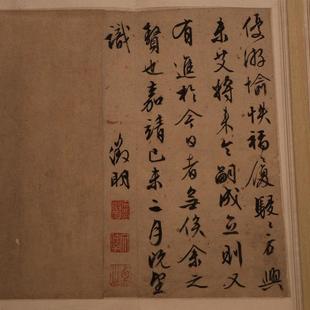 優游愉悅福履駸駸方興
未艾將來令嗣成立則又
有進於今日者無俟余之
贅也嘉靖己未二月既望
識
徵明